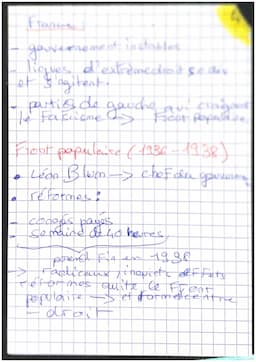 France
- gouvernement instables
- ligues d'extrême droit se des
et s'agitent.
- parties de gauche qui craignent
le Fascisme -> Front Populaire
Front populaire (1936-1938)
• Léon Blum -> chef du gouvernement
• réformes :
- congés payés
- semaine de 40 heures
prend fin en 1938
-> radicaux, inquiets
réformes quitte le Front
populaire -> et forme centre
- droit